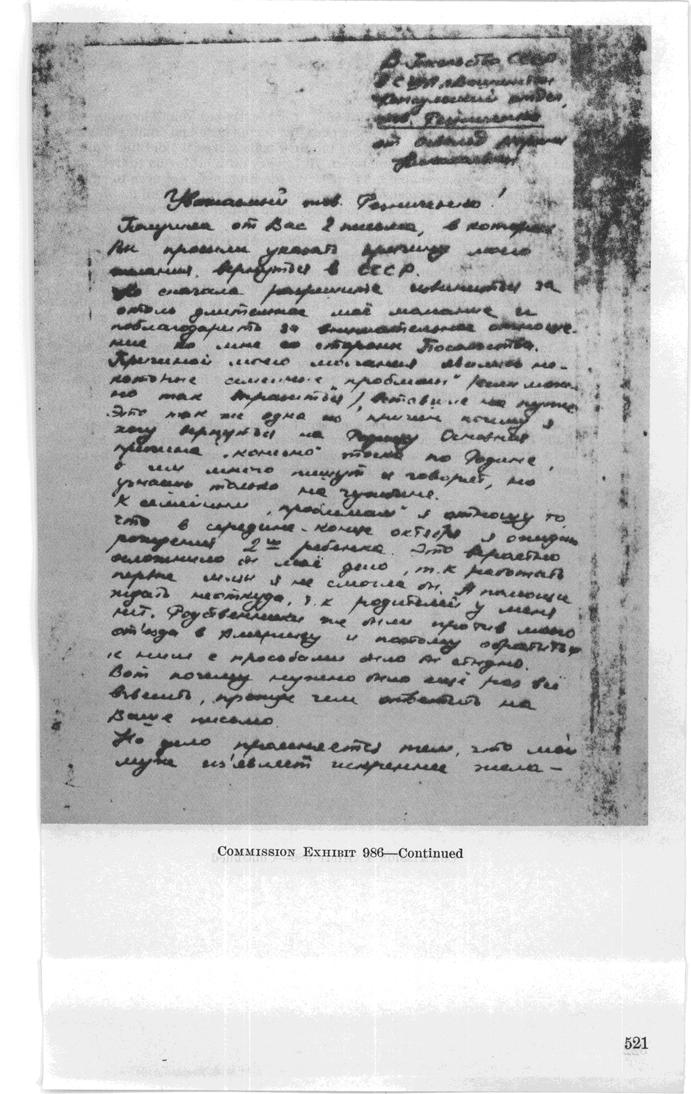 В Посольство СССР
в США г. Вашингтон
Консульский отдел,
тов. Резниченко
от Освальд Марины
Николаевны
Уважаемый тов. Резниченко!
Получила от Вас 2 письма, в которых
Вы просили указать причину моего
желания вернуться в СССР.
Но сначала разрешите извиниться за
столь длительное моё молчание и
поблагодарить за внимательное отноше-
ние ко мне со стороны Посольства.
Причиной моего молчания явились не-
которые семейные "проблемы" (если мож-
но так выразиться)
Это так же одна из причин почему я
хочу вернуться на Родину Основная
причина "конечно" тоска по Родине,
о чём много пишут и говорят, но
узнаёшь только на чужбине.
К семейным "проблемам" я отношу то,
что в середине-конце октября я ожидаю
рождения 2го ребёнка. Это вероятно
осложнило бы моё дело, т.к работать
первые м-цы я не смогла бы. А помощи
ждать неоткуда, т.к родителей у меня
нет. Родственники же были против моего
от'езда в Америку и поэтому обратиться
к ним с просьбами было бы стыдно.
Вот почему нужно было ещё раз всё
взвесить, прежде чем ответить на
Ваше письмо.
Но дело проясняется тем, что мой
муж из'являет искреннее жела-
COMMISSION EXHIBIT 986—Continued
521